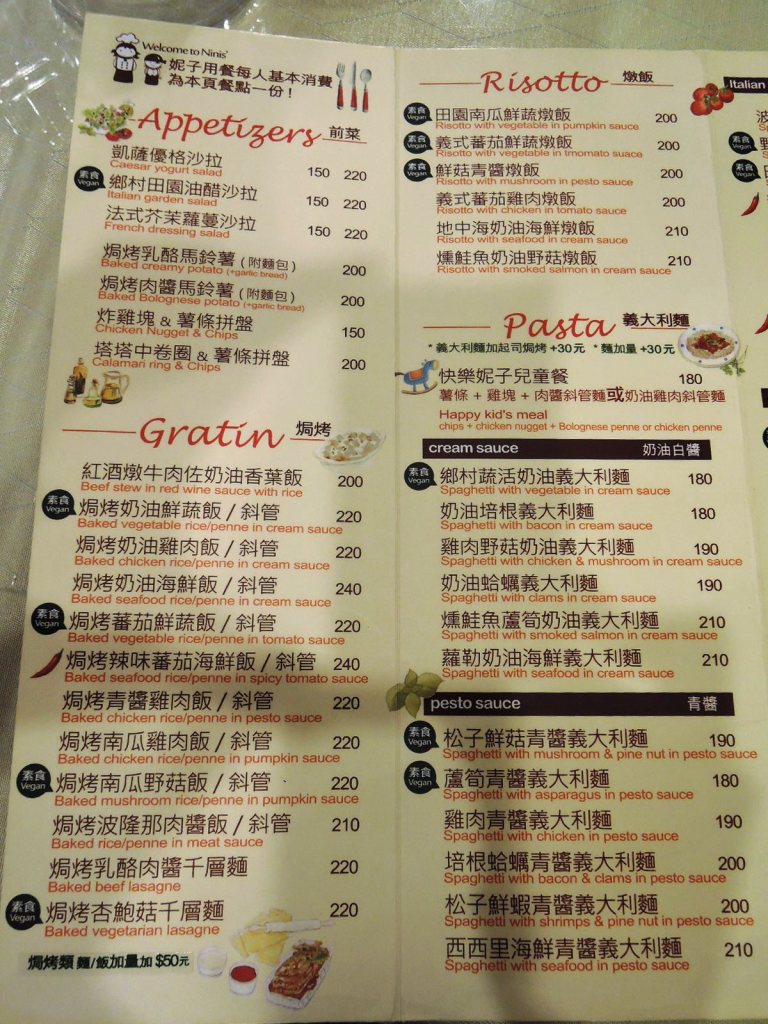 Welcome to Ninis'
妮子用餐每人基本消費
為本頁餐點一份！
Appetizers 前菜
凱薩優格沙拉
Caesar yogurt salad 150 220
素食 Vegan 鄉村田園油醋沙拉
Italian garden salad 150 220
法式芥茉蘿蔓沙拉
French dressing salad 150 220
焗烤乳酪馬鈴薯（附麵包）
Baked creamy potato (+garlic bread) 200
焗烤肉醬馬鈴薯（附麵包）
Baked Bolognese potato (+garlic bread) 200
炸雞塊 & 薯條拼盤
Chicken Nugget & Chips 150
塔塔中卷圈 & 薯條拼盤
Calamari ring & Chips 200
Gratin 焗烤
紅酒燉牛肉佐奶油香葉飯
Beef stew in red wine sauce with rice 200
素食 Vegan 焗烤奶油鮮蔬飯 / 斜管
Baked vegetable rice/penne in cream sauce 220
焗烤奶油雞肉飯 / 斜管
Baked chicken rice/penne in cream sauce 220
焗烤奶油海鮮飯 / 斜管
Baked seafood rice/penne in cream sauce 240
素食 Vegan 焗烤蕃茄鮮蔬飯 / 斜管
Baked vegetable rice/penne in tomato sauce 220
焗烤辣味蕃茄海鮮飯 / 斜管
Baked seafood rice/penne in spicy tomato sauce 240
焗烤青醬雞肉飯 / 斜管
Baked chicken rice/penne in pesto sauce 220
焗烤南瓜雞肉飯 / 斜管
Baked chicken rice/penne in pumpkin sauce 220
素食 Vegan 焗烤南瓜野菇飯 / 斜管
Baked mushroom rice/penne in pumpkin sauce 220
焗烤波隆那肉醬飯 / 斜管
Baked rice/penne in meat sauce 210
焗烤乳酪肉醬千層麵
Baked beef lasagne 220
素食 Vegan 焗烤杏鮑菇千層麵
Baked vegetarian lasagne 220
焗烤類 麵/飯加量加 $50元
Risotto 燉飯
素食 Vegan 田園南瓜鮮蔬燉飯
Risotto with vegetable in pumpkin sauce 200
素食 Vegan 義式蕃茄鮮蔬燉飯
Risotto with vegetable in tmomato suace 200
素食 Vegan 鮮菇青醬燉飯
Risotto with mushroom in pesto sauce 200
義式蕃茄雞肉燉飯
Risotto with chicken in tomato sauce 200
地中海奶油海鮮燉飯
Risotto with seafood in cream sauce 210
燻鮭魚奶油野菇燉飯
Risotto with smoked salmon in cream sauce 210
Pasta 義大利麵
* 義大利麵加起司焗烤 +30元 * 麵加量 +30元
快樂妮子兒童餐 180
薯條 + 雞塊 + 肉醬斜管麵或奶油雞肉斜管麵
Happy kid's meal
chips + chicken nugget + Bolognese penne or chicken penne
cream sauce 奶油白醬
素食 Vegan 鄉村蔬活奶油義大利麵
Spaghetti with vegetable in cream sauce 180
奶油培根義大利麵
Spaghetti with bacon in cream sauce 180
雞肉野菇奶油義大利麵
Spaghetti with chicken & mushroom in cream sauce 190
奶油蛤蠣義大利麵
Spaghetti with clams in cream sauce 190
燻鮭魚蘆筍奶油義大利麵
Spaghetti with smoked salmon in cream sauce 210
蘿勒奶油海鮮義大利麵
Spaghetti with seafood in cream sauce 210
pesto sauce 青醬
素食 Vegan 松子鮮菇青醬義大利麵
Spaghetti with mushroom & pine nut in pesto sauce 190
素食 Vegan 蘆筍青醬義大利麵
Spaghetti with asparagus in pesto sauce 180
雞肉青醬義大利麵
Spaghetti with chicken in pesto sauce 190
培根蛤蠣青醬義大利麵
Spaghetti with bacon & clams in pesto sauce 200
松子鮮蝦青醬義大利麵
Spaghetti with shrimps & pine nut in pesto sauce 200
西西里海鮮青醬義大利麵
Spaghetti with seafood in pesto sauce 210
Italian
素食 Vegan
素食 Vegan